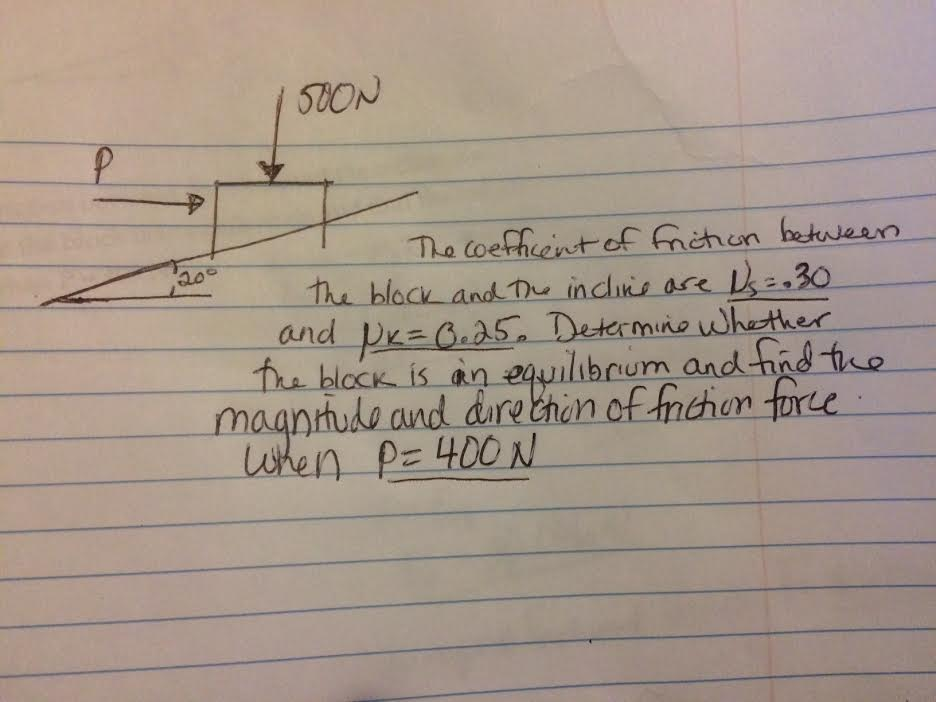 500N
P
20°
The coefficient of friction between
the block and the incline are μs=.30
and μK=0.25. Determine whether
the block is in equilibrium and find the
magnitude and direction of friction force.
when P=400N